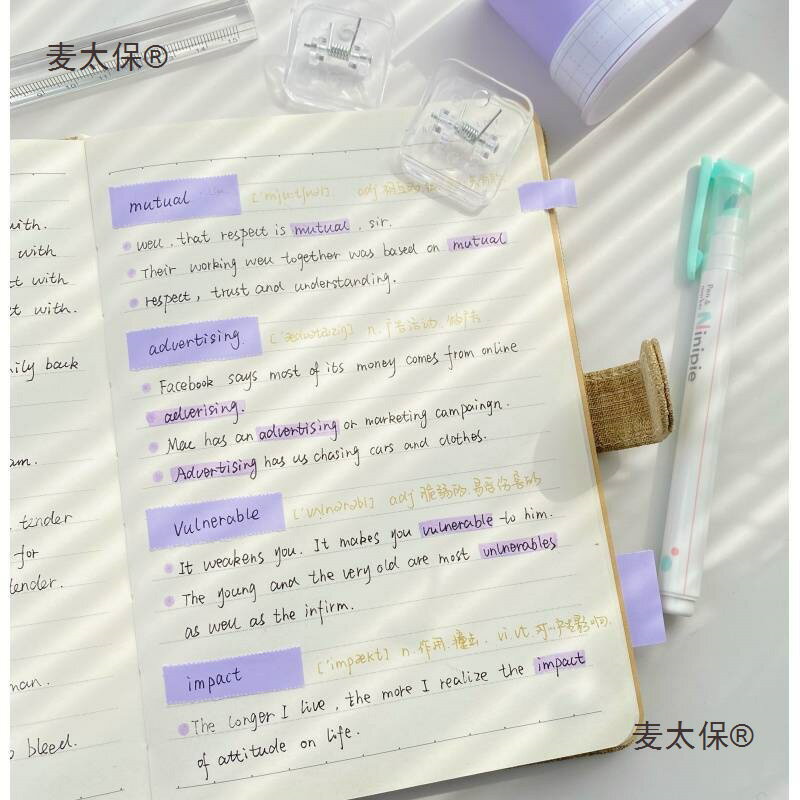 麦太保®
15
14
11
10
with.
with
t with
t with.
nily back
am.
tender
for
tender.
man.
bleed.
mutual
adj
well, that respect is mutual, sir.
Their working well together was based on mutual
respect, trust and understanding.
advertising n. 广告活动.
Facebook says most of its money comes from online
adverising.
Mac has an advertising or marketing campaingn.
Advertising has us chasing cars and clothes.
Vulnerable ['vʌlnərəbl] adj 脆弱的.易受伤害的
It weakens you. It makes you vulnerable to him.
The young and the very old are most unlnerables
as well as the infirm.
impact ['impækt] n. 作用.撞击. vi.vt.对…产生影响.
The longer I live, the more I realize the impact
of attitude on life.
Pen &
Ninipie
麦太保®